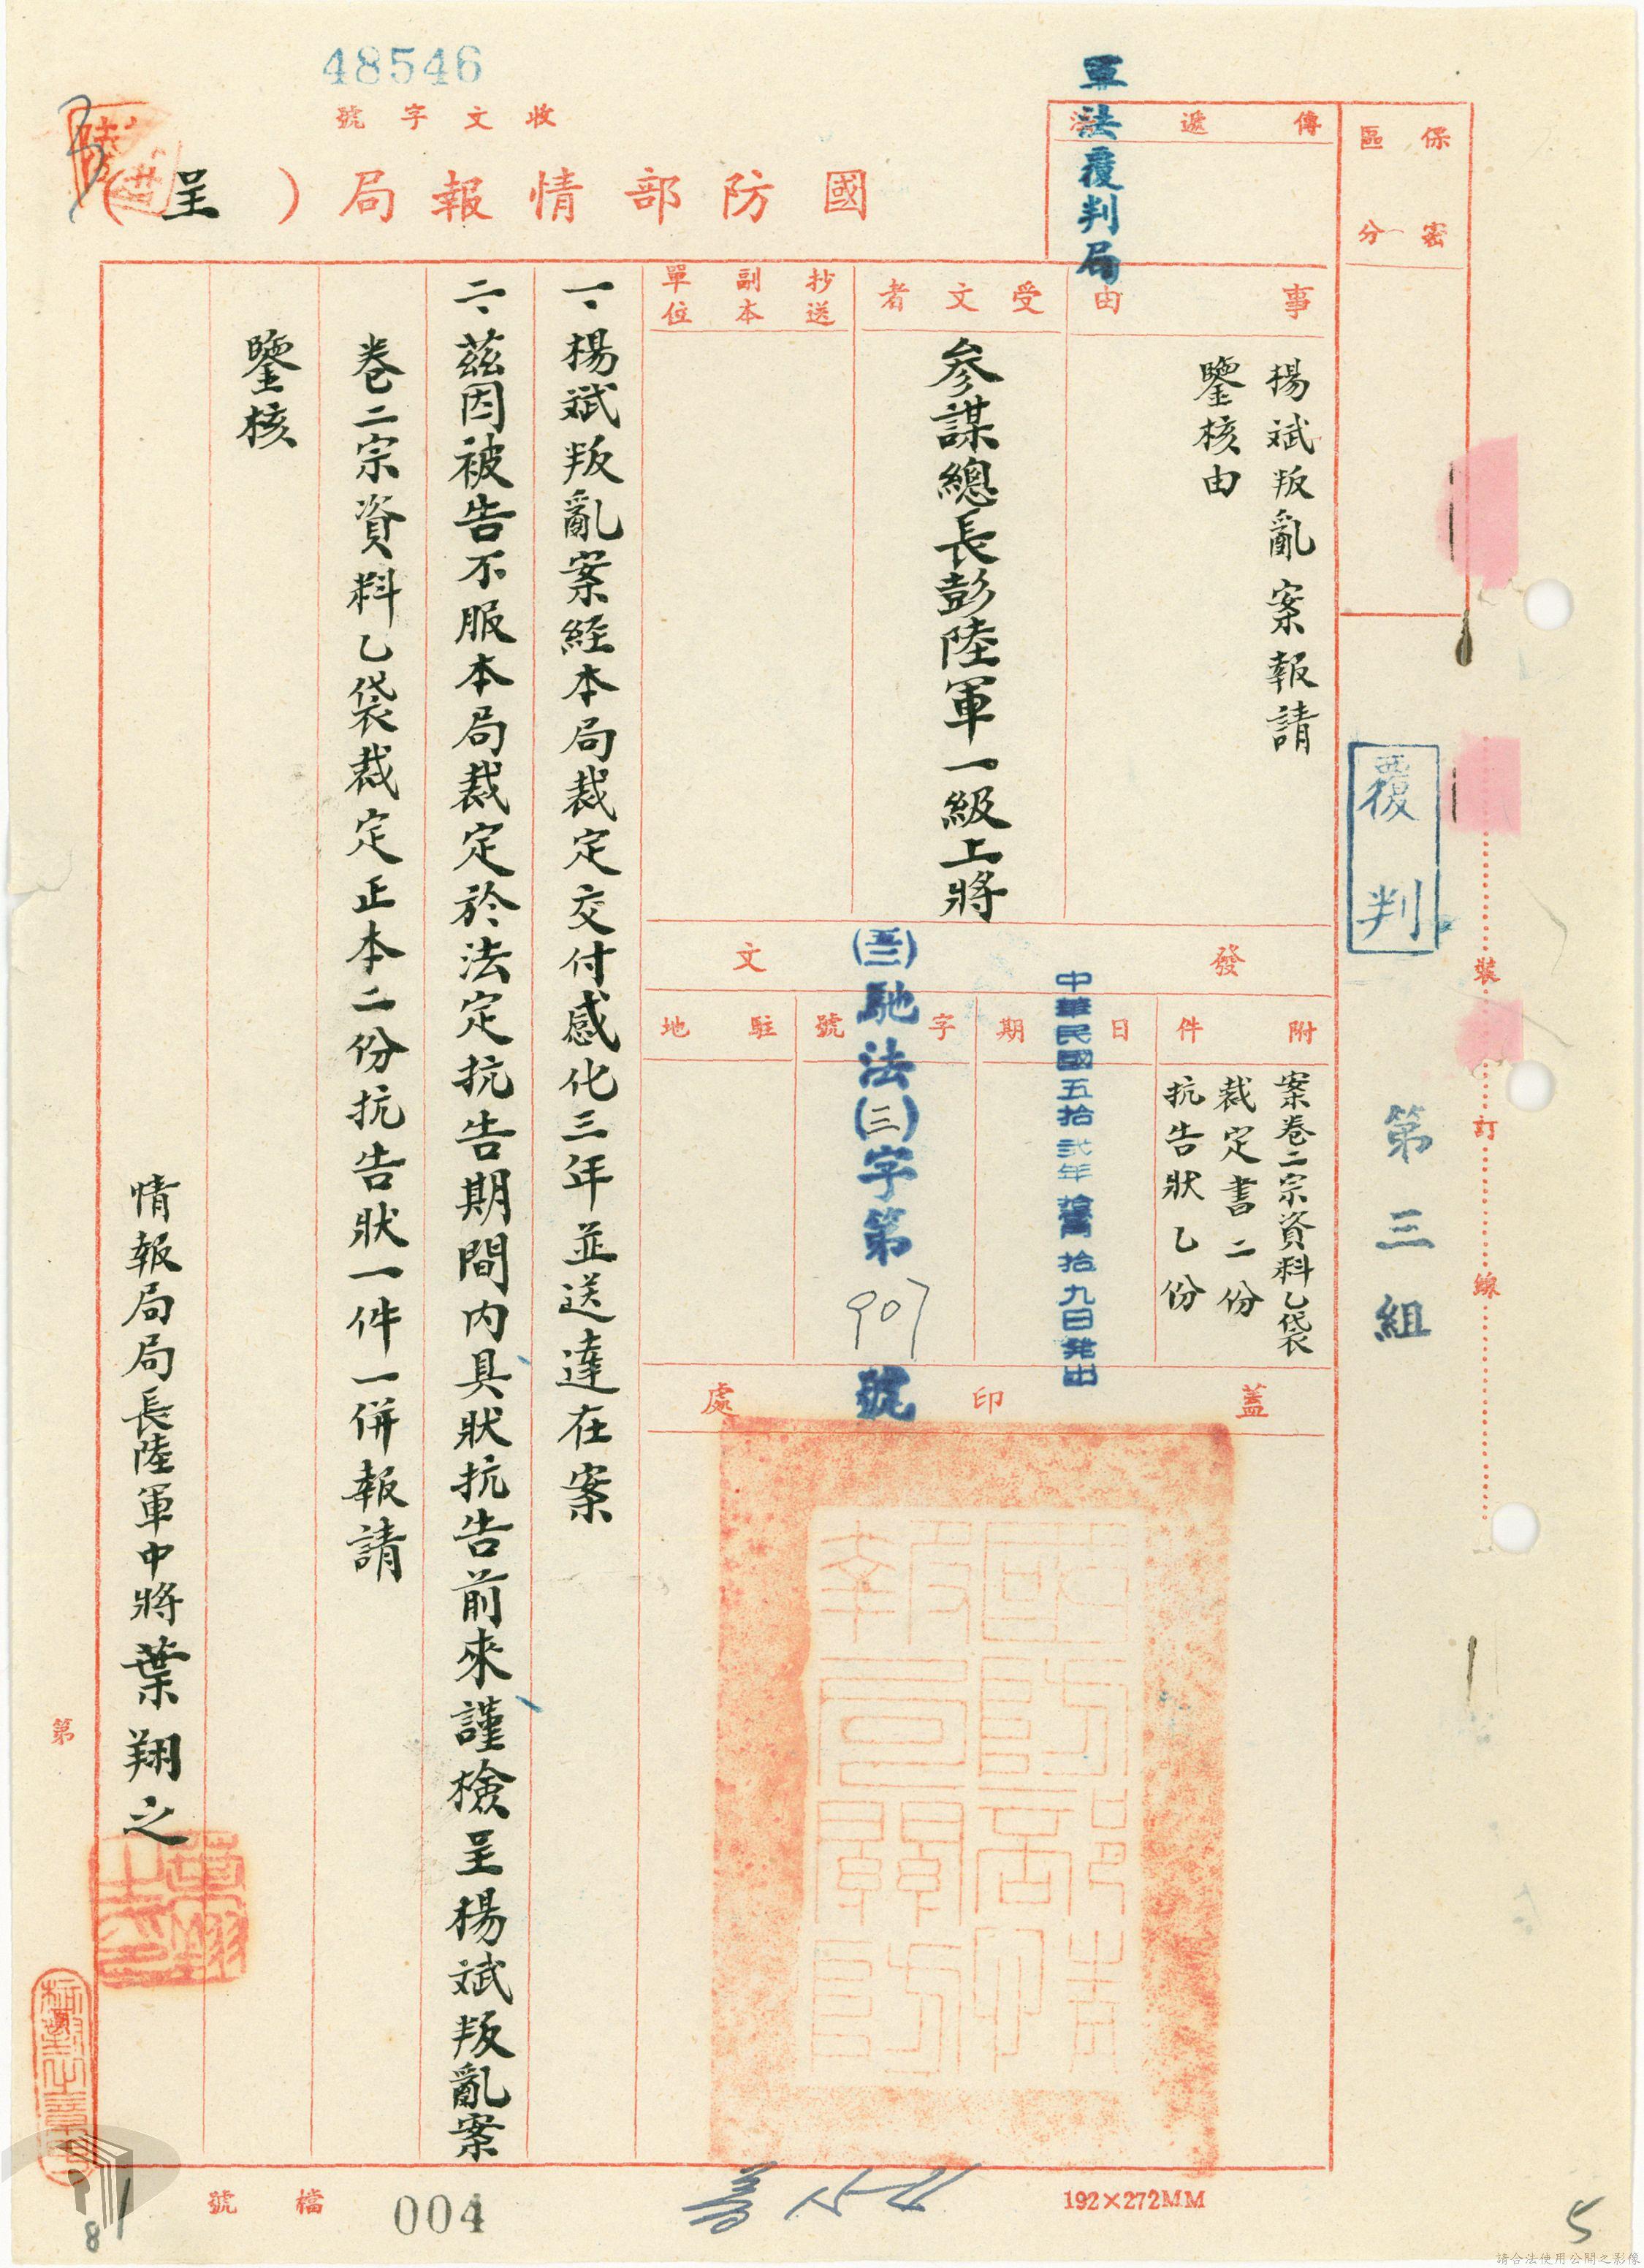 48546
收文字號
國防部情報局（呈）
保密
區分
傳遞
軍法覆判局
事由
楊斌叛亂案報請
鑒核由
受文者
參謀總長彭陸軍一級上將
抄送
副本
單位
發文
附件
案卷二宗資料乙袋
裁定書二份
抗告狀乙份
日期
中華民國五拾弍年 拾九日発出
字號
馳法(三)字第907號
駐地
蓋印處
一、楊斌叛亂案經本局裁定交付感化三年並送達在案
二、茲因被告不服本局裁定於法定抗告期間內具狀抗告前來謹檢呈楊斌叛亂案
卷二宗資料乙袋裁定正本二份抗告狀一件一併報請
鑒核
情報局局長陸軍中將葉翔之
覆判
第三組
裝訂線
第
檔號
004
192×272MM
81
5
請合法使用公開之影像